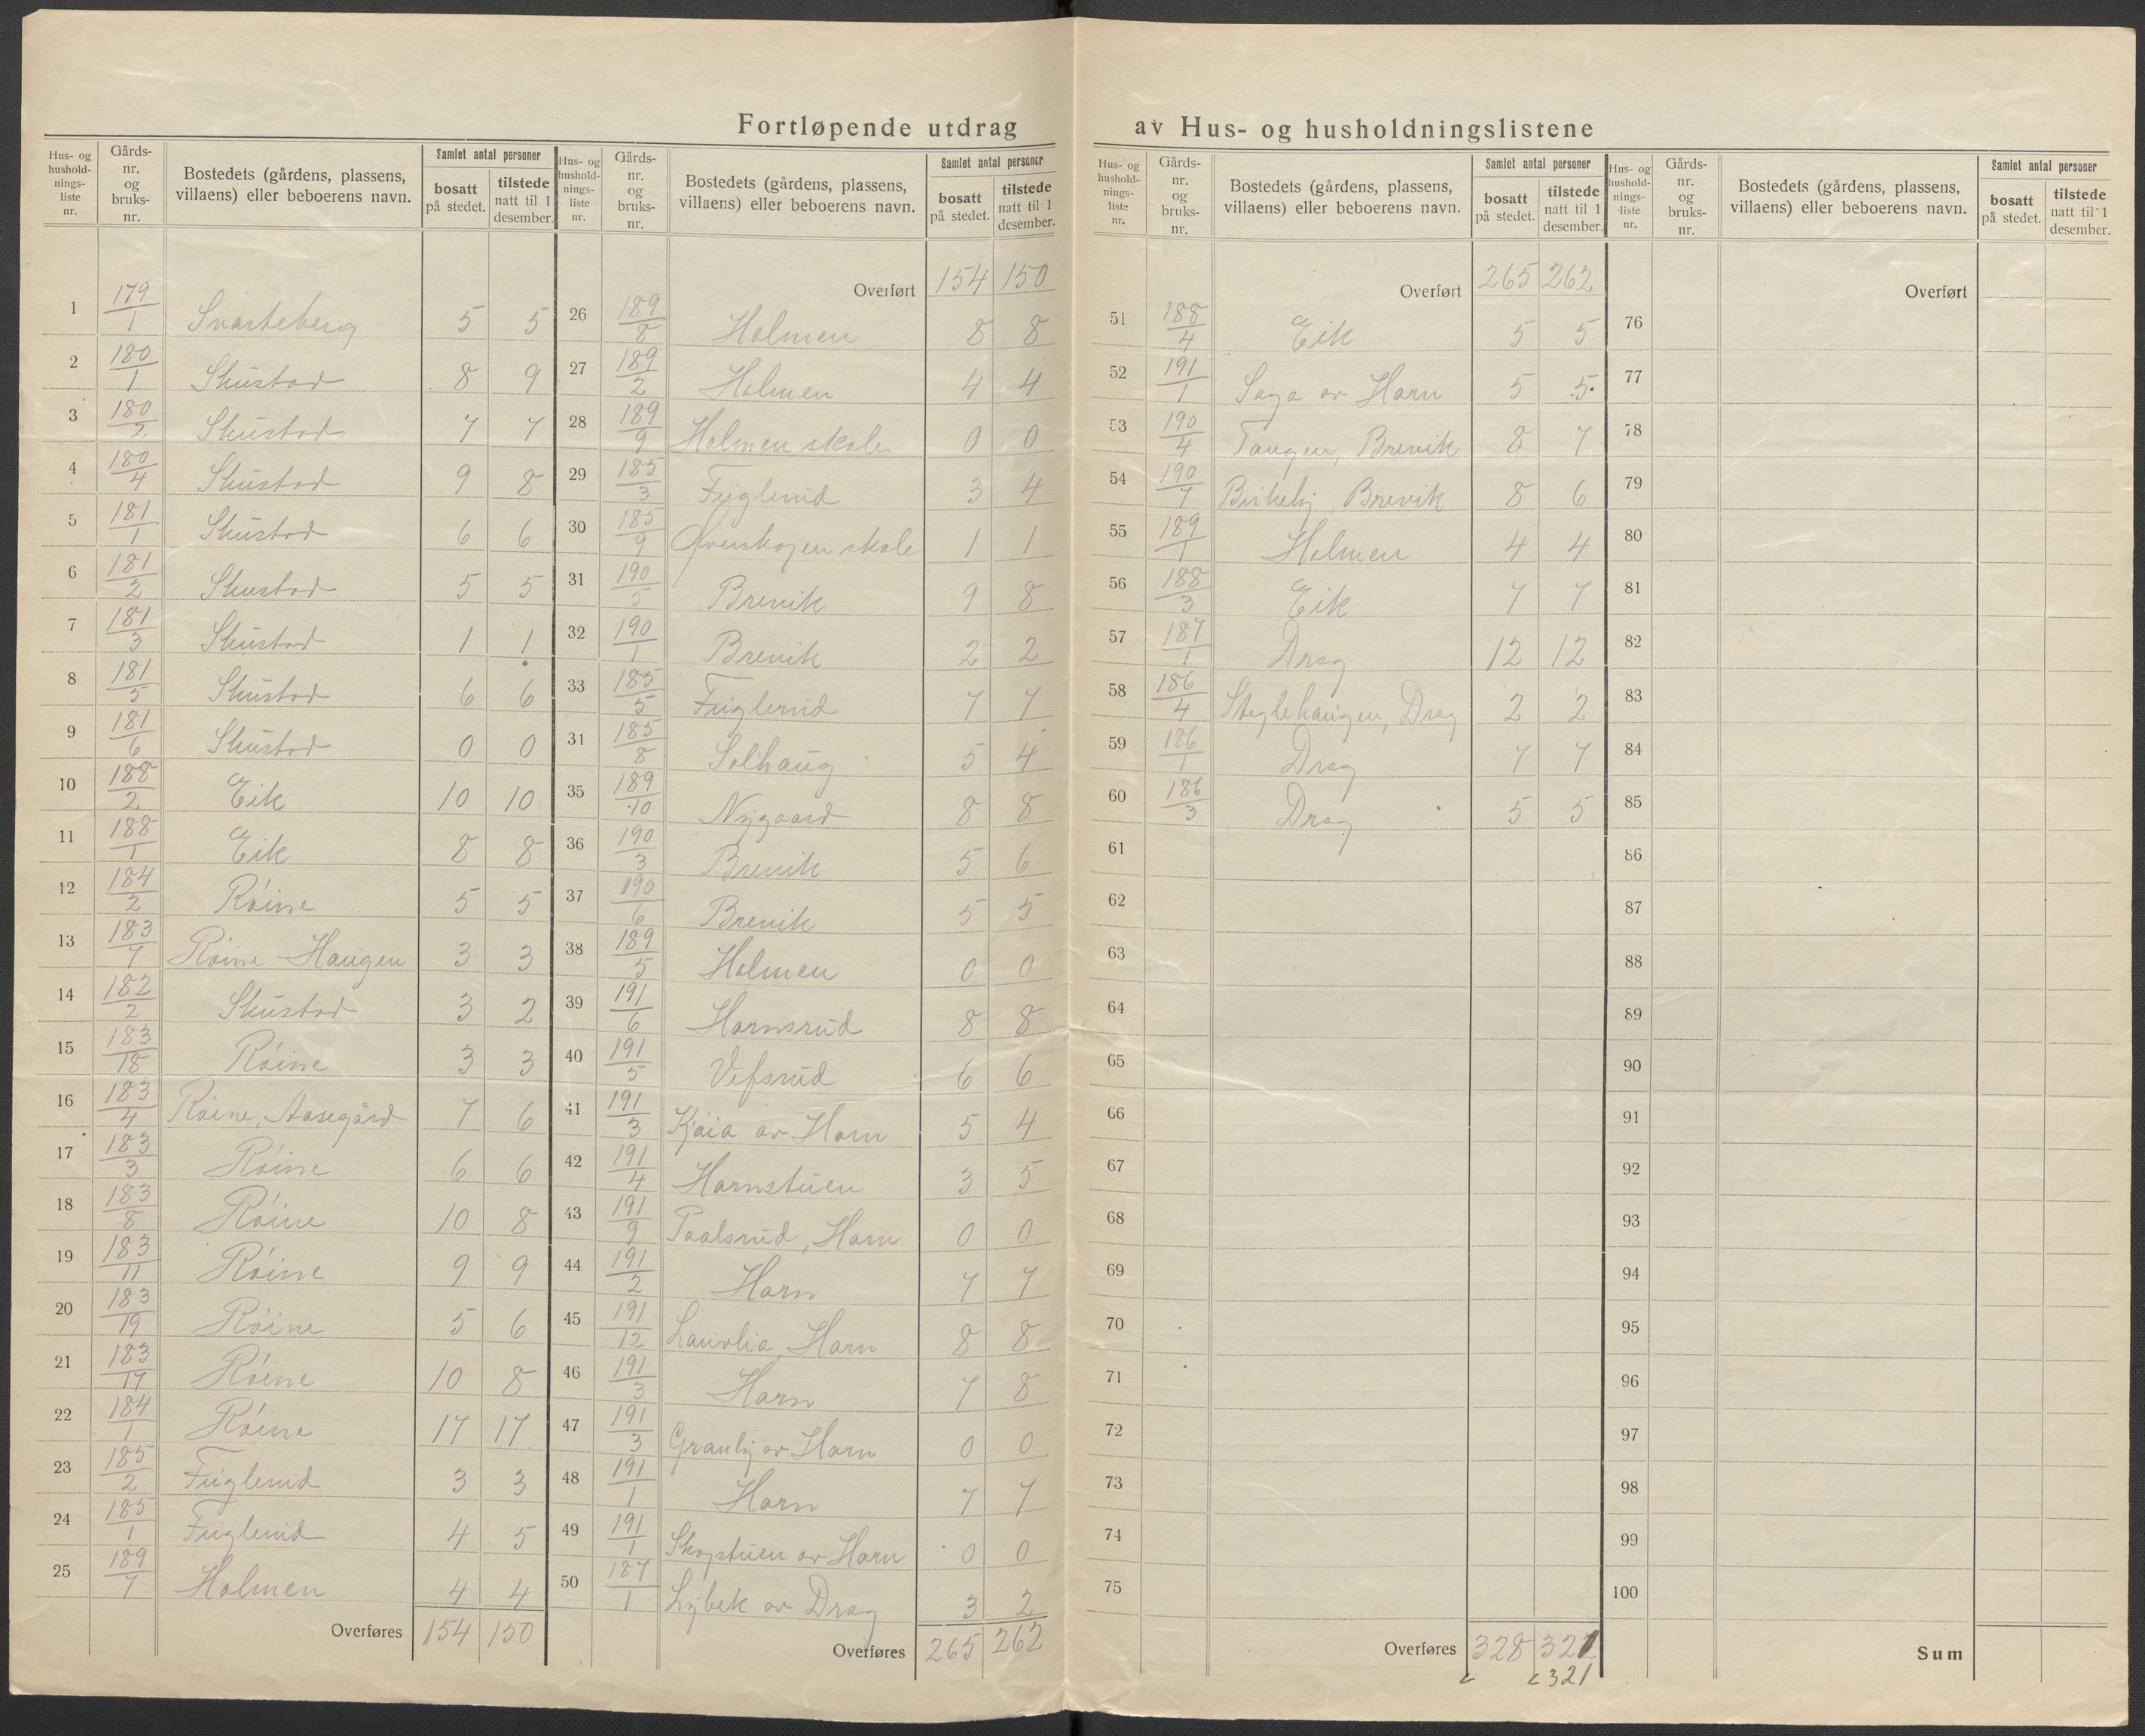 Fortløpende utdrag av Hus- og husholdningslistene
Hus- og husholdningsliste nr. Gårds-nr. og bruks-nr. Bostedets (gårdens, plassens, villaens) eller beboerens navn. Samlet antal personer bosatt på stedet. tilstede natt til 1 desember.
1 179/1 Svarteberg 5 5
2 180/1 Skustad 8 9
3 180/2 Skustad 7 7
4 180/4 Skustad 9 8
5 181/1 Skustad 6 6
6 181/2 Skustad 5 5
7 181/3 Skustad 1 1
8 181/5 Skustad 6 6
9 181/6 Skustad 0 0
10 188/2 Eik 10 10
11 188/1 Eik 8 8
12 184/2 Róine 5 5
13 183/7 Róine Haugen 3 3
14 182/2 Skustad 3 2
15 183/18 Róine 3 3
16 183/4 Róine, Aasegård 7 6
17 183/3 Róine 6 6
18 183/8 Róine 10 8
19 183/11 Róine 9 9
20 183/19 Róine 5 6
21 183/17 Róine 10 8
22 184/1 Róine 17 17
23 185/2 Fuglerud 3 3
24 185/1 Fuglerud 4 5
25 189/7 Holmen 4 4
Overføres 154 150
Hus- og husholdningsliste nr. Gårds-nr. og bruks-nr. Bostedets (gårdens, plassens, villaens) eller beboerens navn. Samlet antal personer bosatt på stedet. tilstede natt til 1 desember.
Overført 154 150
26 189/8 Holmen 8 8
27 189/2 Holmen 4 4
28 189/9 Holmen skole 0 0
29 185/3 Fuglerud 3 4
30 185/9 Øverskogen skole 1 1
31 190/5 Brevik 9 8
32 190/1 Brevik 2 2
33 185/5 Fuglerud 7 7
31 185/8 Solhaug 5 4
35 189/10 Nygaard 8 8
36 190/3 Brevik 5 6
37 190/6 Brevik 5 5
38 189/5 Holmen 0 0
39 191/6 Harnsrud 8 8
40 191/5 Vefsrud 6 6
41 191/3 Kjaia av Harn 5 4
42 191/4 Harnstuen 3 5
43 191/9 Paalsrud, Harn 0 0
44 191/2 Harn 7 7
45 191/12 Laurlia, Harn 8 8
46 191/3 Harn 7 8
47 191/3 Granby av Harn 0 0
48 191/1 Harn 7 7
49 191/1 Skogstuen av Harn 0 0
50 187/1 Lybek av Drag 3 2
Overføres 265 262
Hus- og husholdningsliste nr. Gårds-nr. og bruks-nr. Bostedets (gårdens, plassens, villaens) eller beboerens navn. Samlet antal personer bosatt på stedet. tilstede natt til 1 desember.
Overført 265 262
51 188/4 Eik 5 5
52 191/1 Saga av Harn 5 5
53 190/4 Tangen, Brevik 8 7
54 190/7 Birkeby, Brevik 8 6
55 189/1 Holmen 4 4
56 188/3 Eik 7 7
57 187/1 Drag 12 12
58 186/4 Steglehaugen, Drag 2 2
59 186/1 Drag 7 7
60 186/3 Drag 5 5
61
62
63
64
65
66
67
68
69
70
71
72
73
74
75
Overføres 328 321
321
Hus- og husholdningsliste nr. Gårds-nr. og bruks-nr. Bostedets (gårdens, plassens, villaens) eller beboerens navn. Samlet antal personer bosatt på stedet. tilstede natt til 1 desember.
Overført
76
77
78
79
80
81
82
83
84
85
86
87
88
89
90
91
92
93
94
95
96
97
98
99
100
Sum